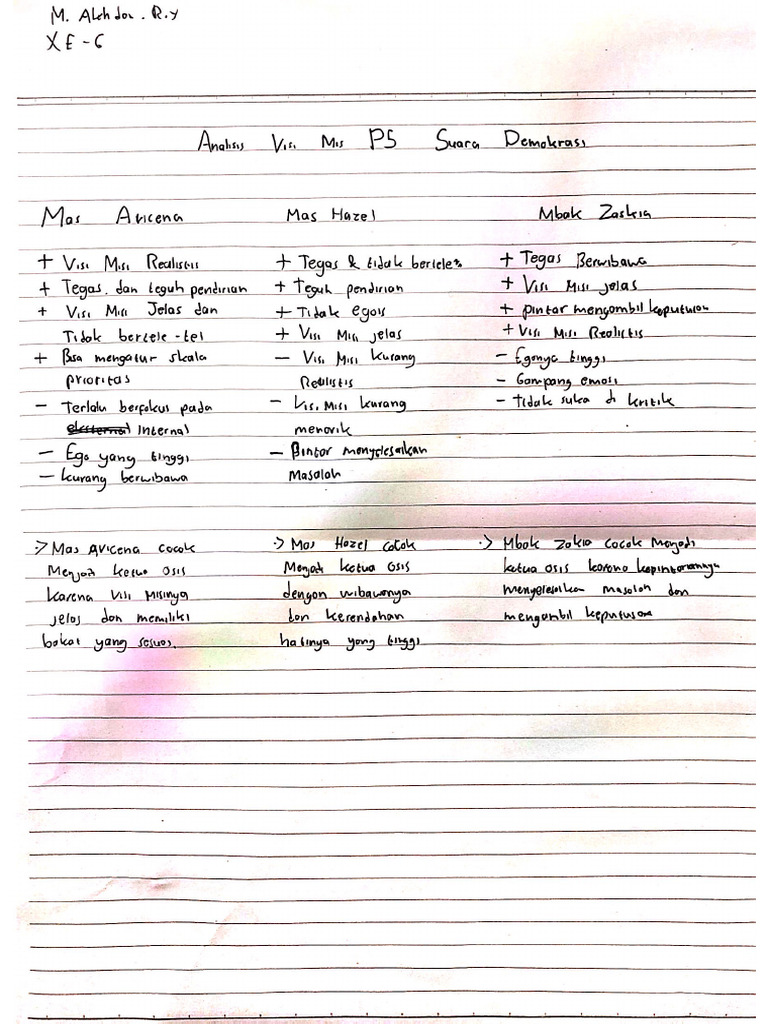 M. Alehdon. R.y
XE-6
Analisis Visi Mis P5 Suara Demokrasi
Mas Avicena
+ Visi Misi Realistis
+ Tegas. dan teguh pendirian
+ Visi Misi Jelas dan
Tidak bertele-tel
+ Bisa mengatur skala
prioritas
- Terlalu berfokus pada
internal
- Ego yang tinggi
- kurang berwibawa
:> Mas Avicena cocok
Menjadi ketua osis
karena visi misinya
jelas dan memiliki
bakat yang sesuai.
Mas Hazel
+ Tegas & tidak bertele²
+ Teguh pendirian
+ Tidak egois
+ Visi Misi jelas
- Visi Misi kurang
Realistis
- Visi Misi kurang
menarik
- Pintar menyelesaikan
Masalah
:> Mas Hazel cocok
Menjadi ketua osis
dengan wibawanya
dan kerendahan
hatinya yang tinggi
Mbak Zaskia
+ Tegas Berwibawa
+ Visi Misi jelas
+ pintar mengambil keputusan
+ Visi Misi Realistis
- Egonya tinggi
- Gampang emosi
- Tidak suka di kritik
:> Mbak Zakia cocok Menjadi
ketua osis karena kepintarannya
menyelesaikan masalah dan
mengambil keputusan